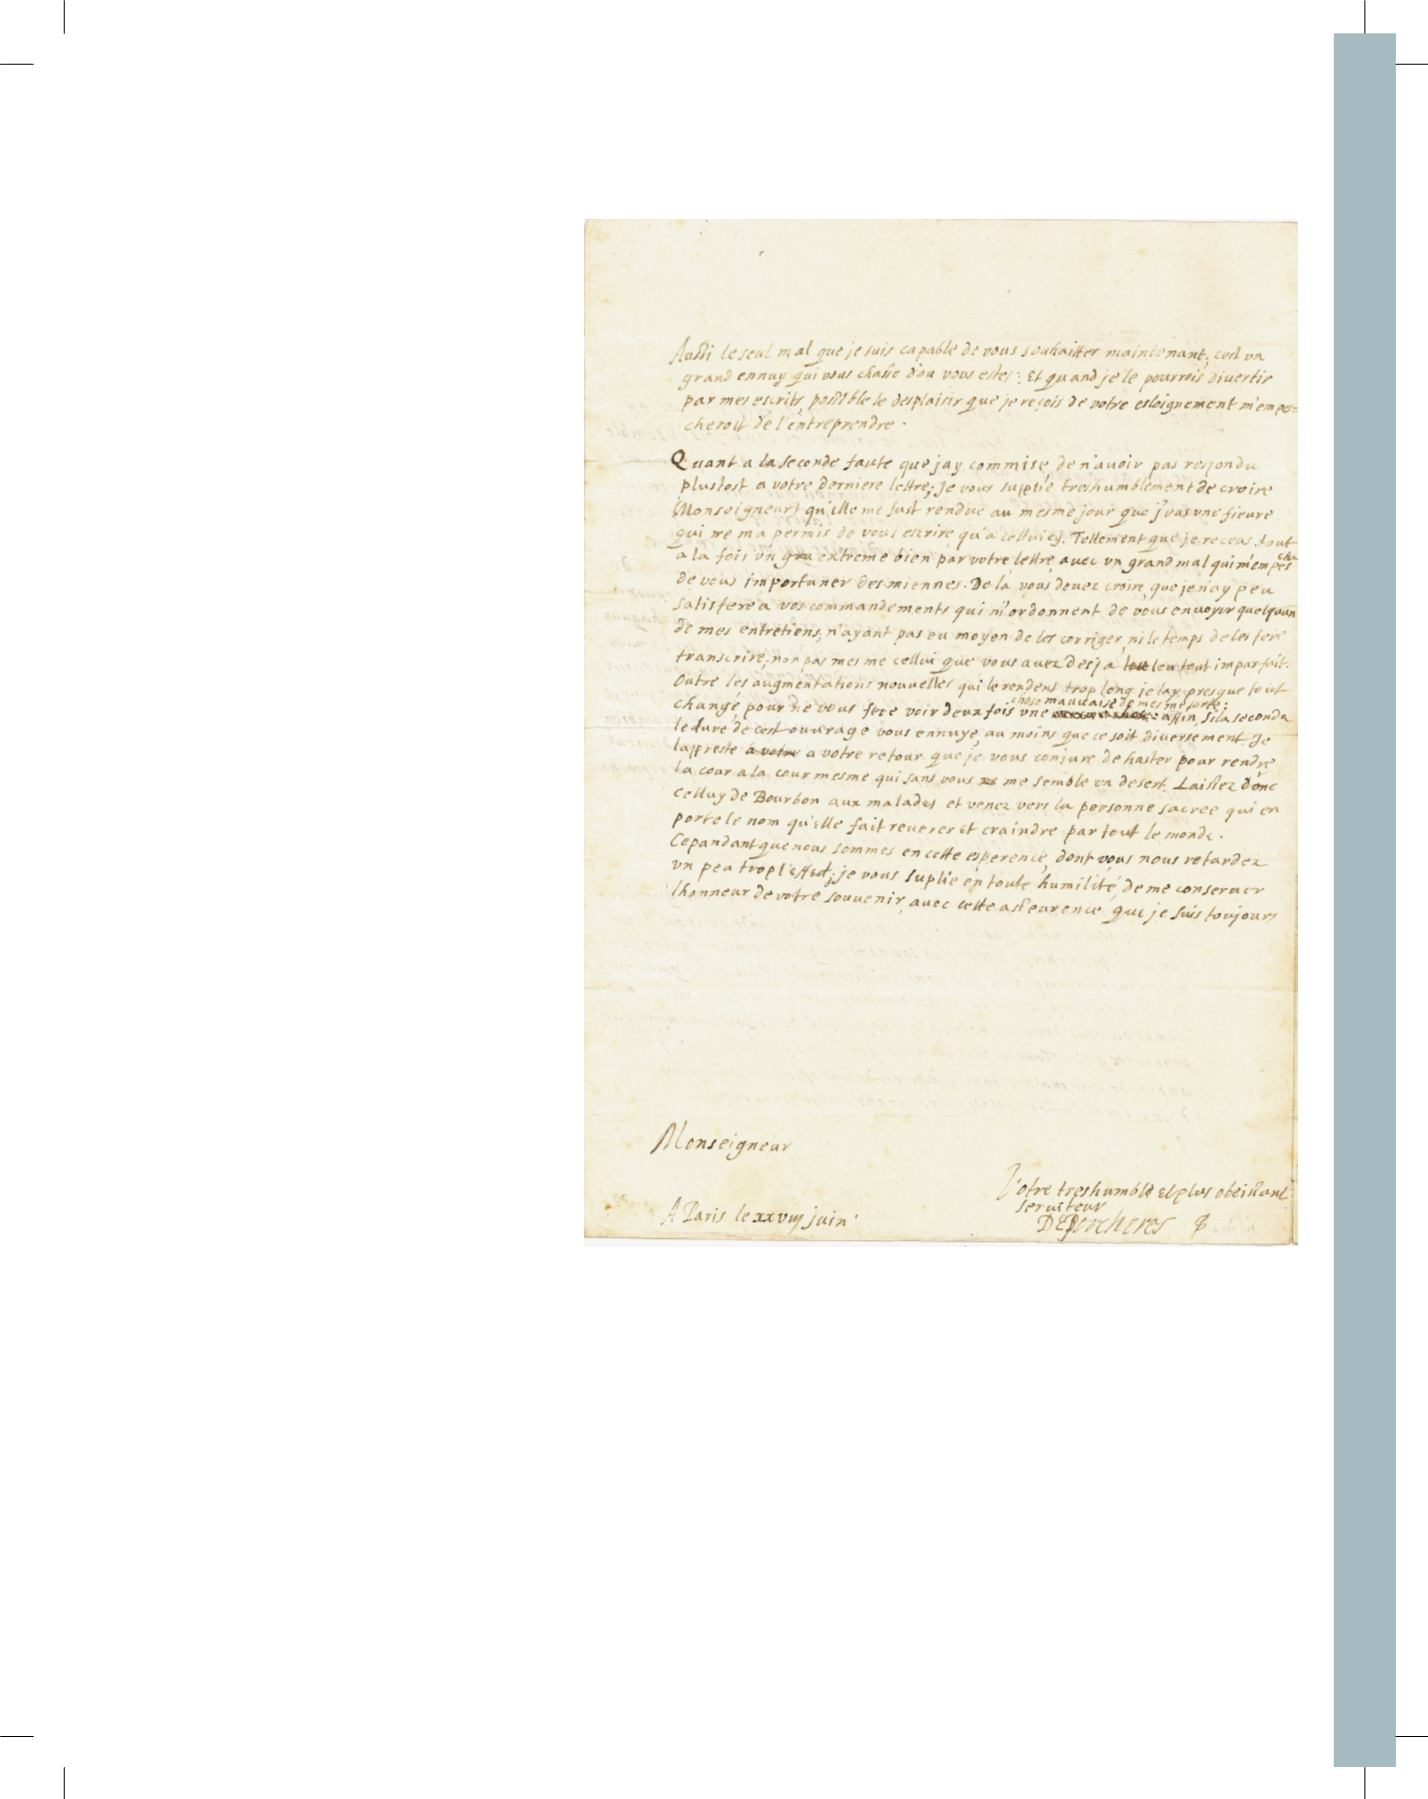 Aussi le seul mal que je suis capable de vous souhaitter maintenant, cest vn
grand ennuy qui vous chasse d'ou vous estes: Et quand je le pourrois divertir
par mes escrits, possible le desplaisir que je reçois de votre esloignement m'empes=
cheroit de l'entreprendre.
Quant a la seconde faute que jay commise, de n'auoir pas respondu
plustost a votre derniere lettre; Je vous suplie treshumblement de croire
(Monseigneur) qu'elle me fust rendue au mesme jour que j'eus vne fieure
qui ne ma permis de vous escrire qu'a cettuiey. Tellement que je receus tout
a la fois vn gra extreme bien par votre lettre, auec vn grand mal qui m'empescha
de vous importuner des miennes. De la vous deuez croire, que je n'ay peu
satisfere a vos commandements qui m'ordonnent de vous enuoyer quelquun
de mes entretiens, n'ayant pas eu moyen de les corriger, ni le temps de les fere
transcrire, non pas mesme cellui que vous auez desja leu tout imparfait.
Outre les augmentations nouuelles qui le rendent trop long, je lay presque tout
chose mauuaise de mesme sorte:
changé pour ne vous fere voir deux fois vne affin, si la seconde
lecture de cest ouurage vous ennuye, au moins que ce soit diuersement. Je
lappreste a votre a votre retour que je vous conjure de haster pour rendre
la cour a la cour mesme qui sans vous me semble vn desert. Laissez donc
celluy de Bourbon aux malades et venez vers la personne sacree qui en
porte le nom qu'elle fait reuerer et craindre par tout le monde.
Cepandant que nous sommes en cette esperence, dont vous nous retardez
vn peu trop l'effect; je vous suplie en toute humilité, de me conseruer
lhonneur de votre souuenir, auec cette asseurence que je suis toujours
Monseigneur
Votre treshumble et plus obeissant
seruiteur
A Paris le xxviij juin.
DEPorcheres